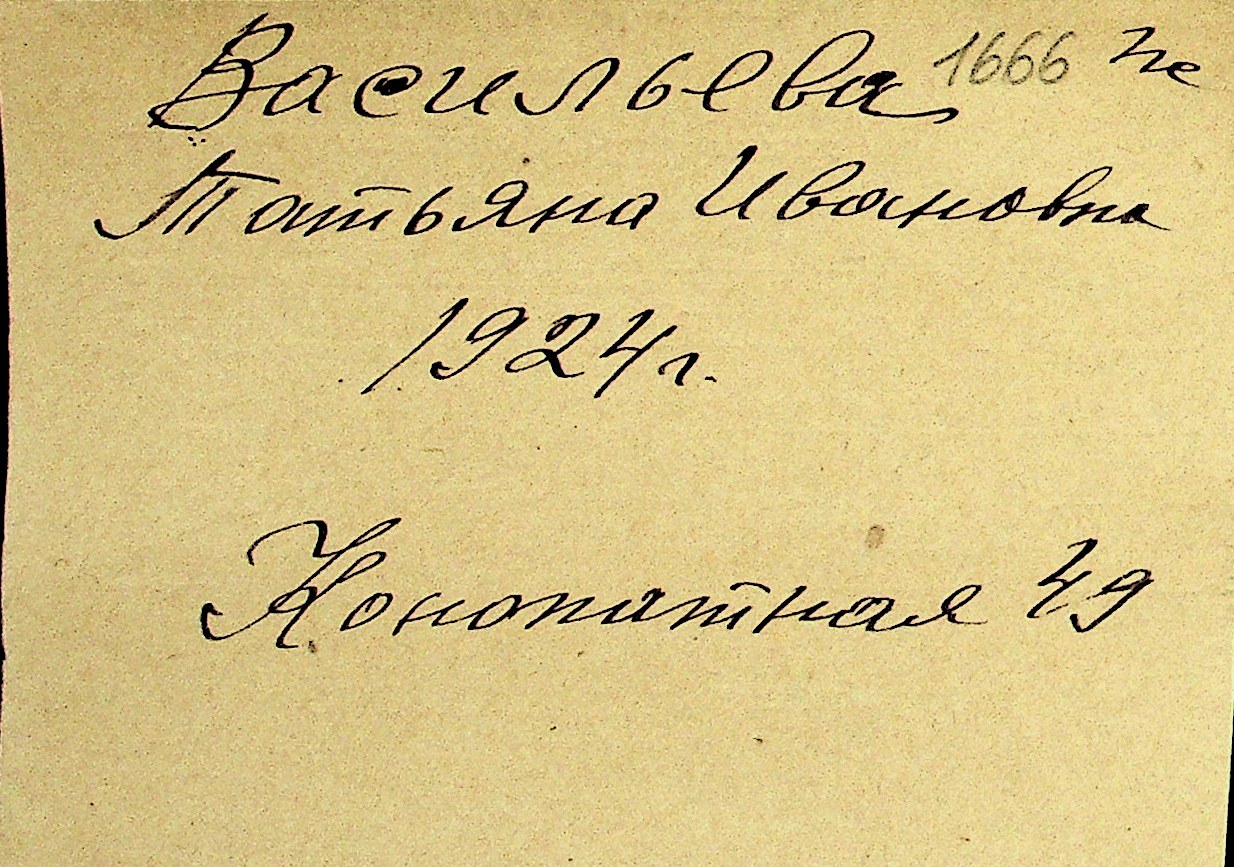 Васильева 1666
Татьяна Ивановна
1924г.
Конопатная 49